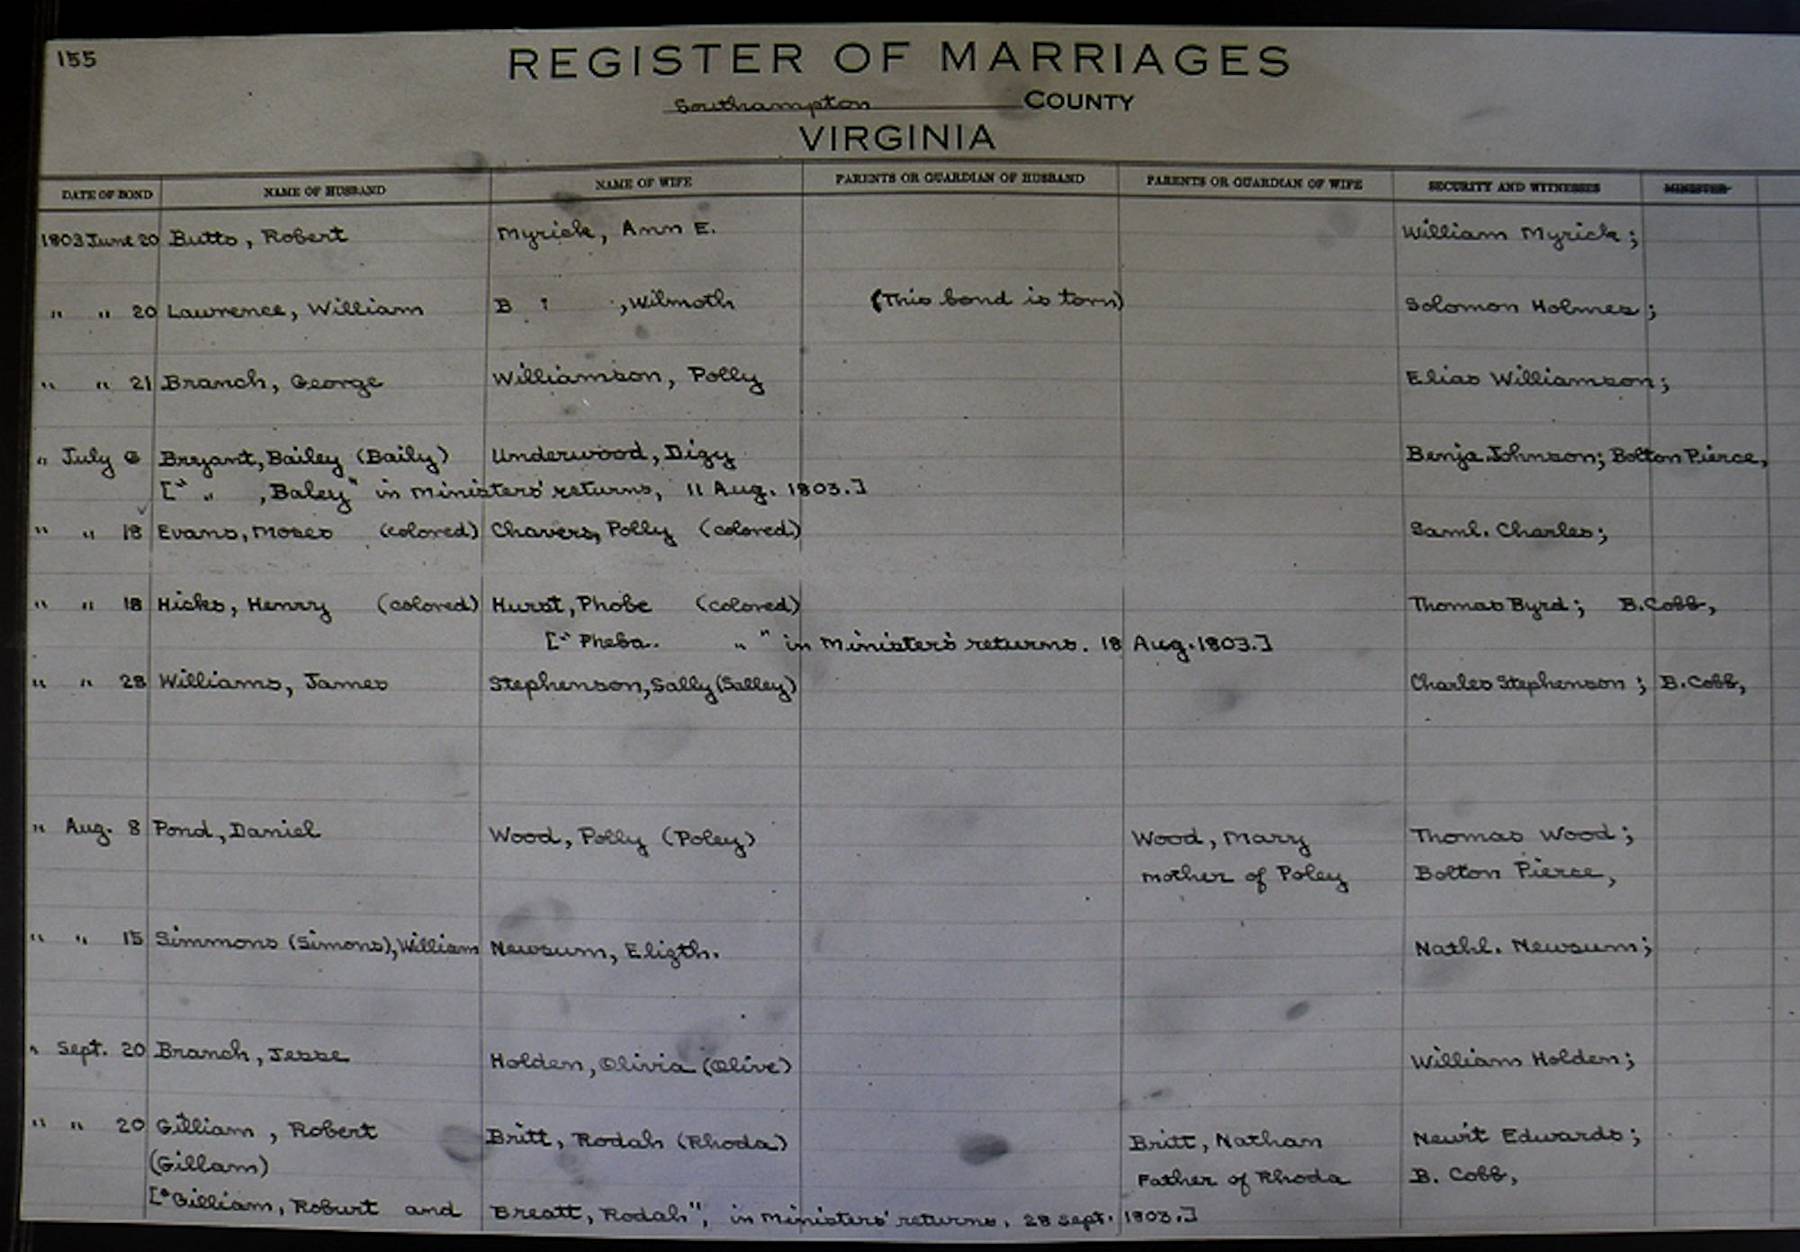 155
REGISTER OF MARRIAGES
Southampton COUNTY
VIRGINIA
DATE OF BOND NAME OF HUSBAND NAME OF WIFE PARENTS OR GUARDIAN OF HUSBAND PARENTS OR GUARDIAN OF WIFE SECURITY AND WITNESSES MINISTER
1803 June 20 Butts, Robert Myrick, Ann E. William Myrick;
" " 20 Lawrence, William B ! , Wilmoth (This bond is torn) Solomon Holmes;
" " 21 Branch, George Williamson, Polly Elias Williamson;
" July 6 Bryant, Bailey (Baily) Underwood, Dizy Benja Johnson; Bolton Pierce,
[" " , Baley" in Ministers' returns, 11 Aug. 1803.]
" " 18 Evans, Moses (colored) Chavers, Polly (colored) Saml. Charles;
" " 18 Hicks, Henry (colored) Hurst, Phobe (colored) Thomas Byrd; B. Cobb,
[" Pheba. " " in Minister's returns. 18 Aug. 1803.]
" " 28 Williams, James Stephenson, Sally (Salley) Charles Stephenson; B. Cobb,
" Aug. 8 Pond, Daniel Wood, Polly (Poley) Wood, Mary Thomas Wood;
mother of Poley Bolton Pierce,
" " 15 Simmons (Simons), William Newsum, Elizth. Nathl. Newsum;
" Sept. 20 Branch, Jesse Holden, Olivia (Olive) William Holden;
" " 20 Gilliam, Robert Britt, Rodah (Rhoda) Britt, Nathan Newit Edwards;
(Gillam) Father of Rhoda B. Cobb,
["Gilliam, Roburt and Breatt, Rodah", in Ministers' returns, 28 Sept. 1803.]